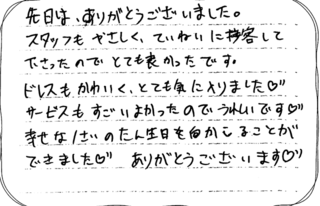 先日は、ありがとうございました。
スタッフも やさしく、ていねいに 接客して
下さったので とても良かったです。
ドレスも かわいく、とても気に入りました♡
サービスも すごい よかったので うれしいです♡
幸せな 1才の たん生日を むかえることが
できました♡ ありがとうございます♡